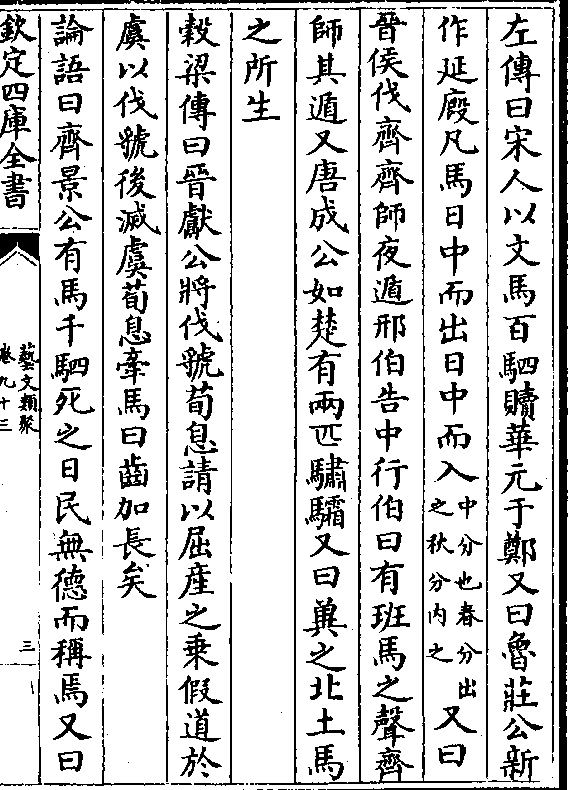 左傳曰宋人以文馬百駟贖華元于鄭又曰魯莊公新
作延廐凡馬日中而出日中而入中分也春分出之秋分内之又曰
晉侯伐齊齊師夜遁邢伯告中行伯曰有班馬之聲齊
師其遁又唐成公如楚有兩匹驌驦又曰冀之北土馬
之所生
穀梁傳曰晉獻公將伐虢荀息請以屈産之乗假道於
虞以伐虢後滅虞荀息牽馬曰齒加長矣
論語曰齊景公有馬千駟死之日民無德而稱焉又曰
欽定四庫全書
藝文類聚
卷九十三
三